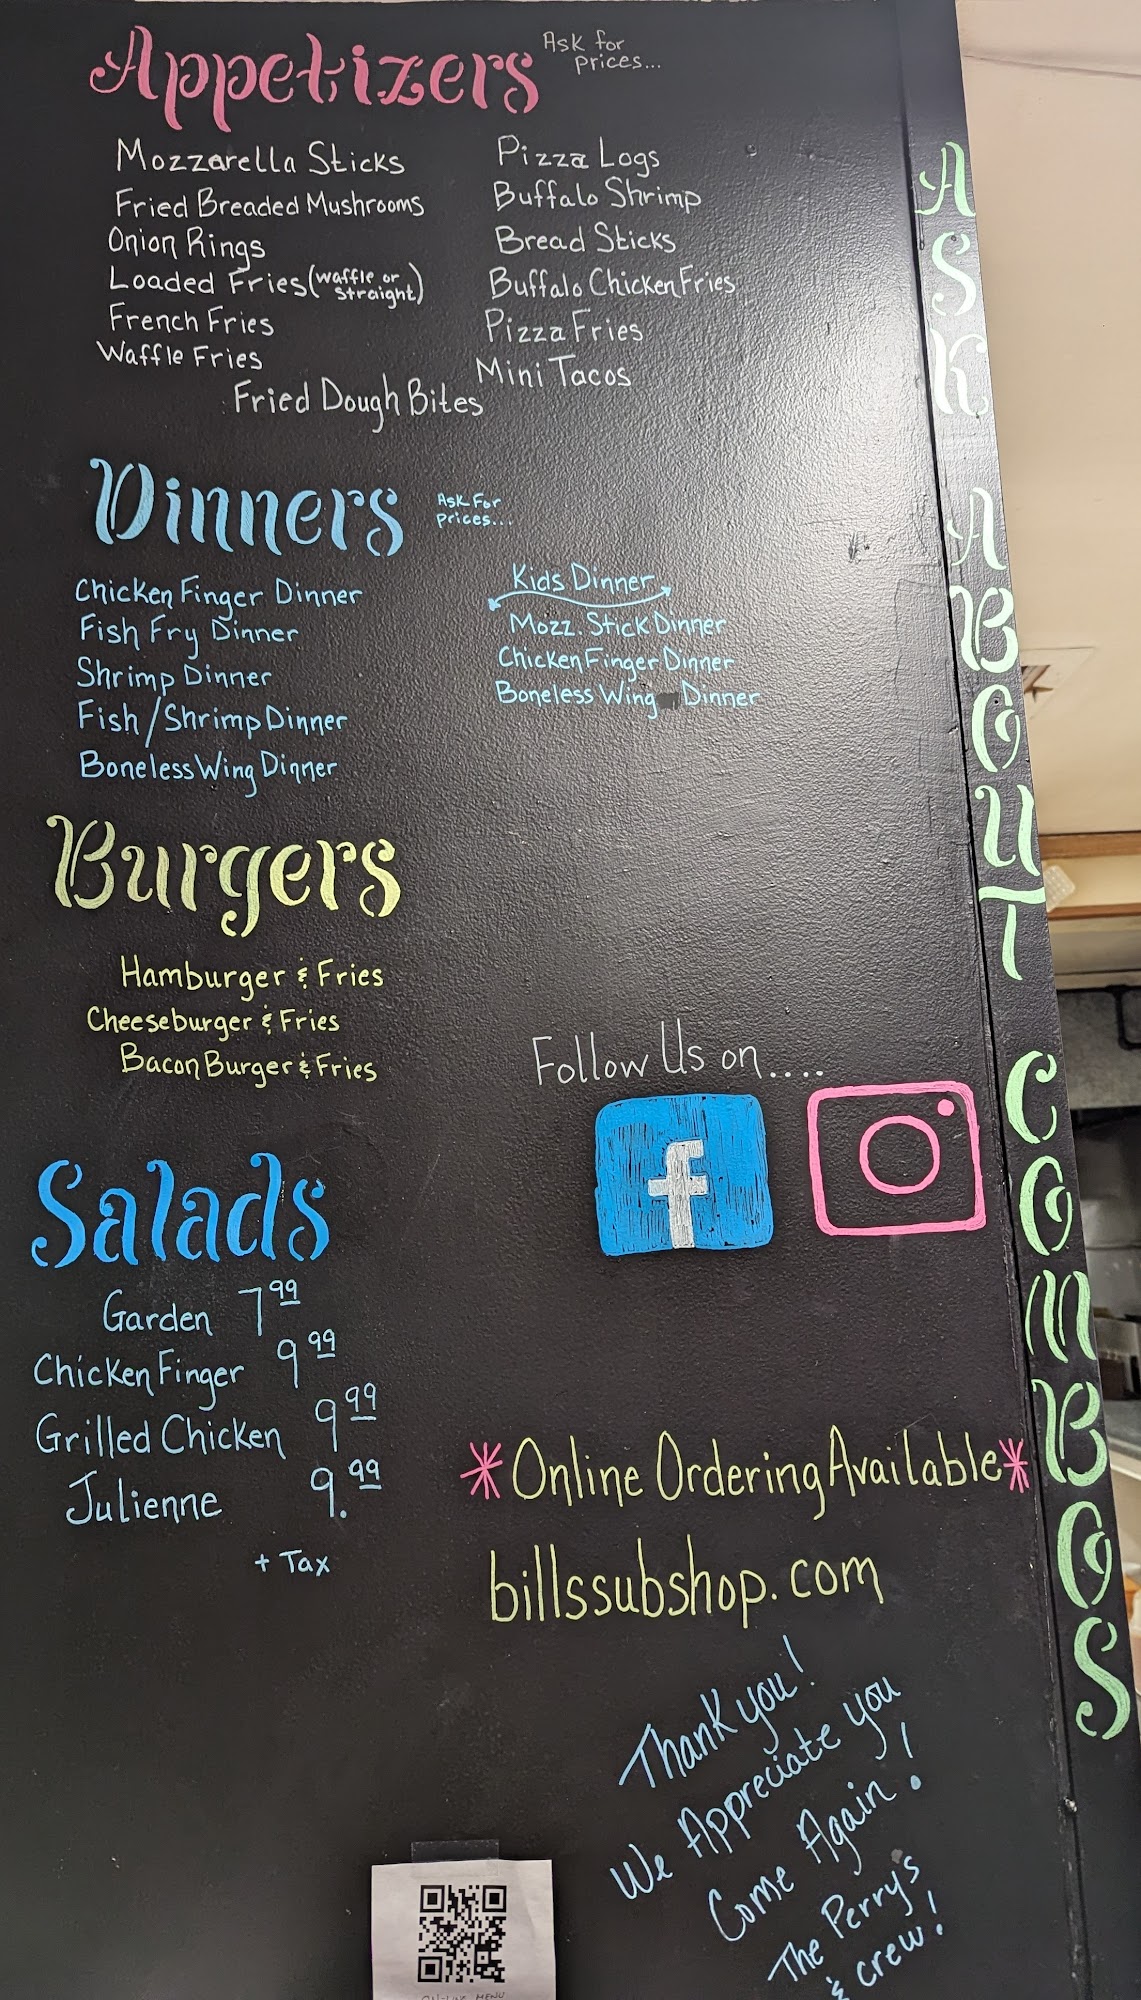 Appetizers
Ask for
prices...
Mozzarella Sticks
Fried Breaded Mushrooms
Onion Rings
Loaded Fries (waffle or
straight)
French Fries
Waffle Fries
Fried Dough Bites
Pizza Logs
Buffalo Shrimp
Bread Sticks
Buffalo Chicken Fries
Pizza Fries
Mini Tacos
Dinners
Ask For
prices...
Chicken Finger Dinner
Fish Fry Dinner
Shrimp Dinner
Fish/Shrimp Dinner
Boneless Wing Dinner
Kids Dinner
Mozz. Stick Dinner
Chicken Finger Dinner
Boneless Wing Dinner
Burgers
Hamburger & Fries
Cheeseburger & Fries
Bacon Burger & Fries
Salads
Garden 7 99
Chicken Finger 9 99
Grilled Chicken 9 99
Julienne 9. 99
+ Tax
Follow Us on....
f
*Online Ordering Available*
billssubshop.com
Thank you!
We Appreciate you
Come Again!
The Perry's
& crew!
ON-LINE MENU
ASK ABOUT COMBOS